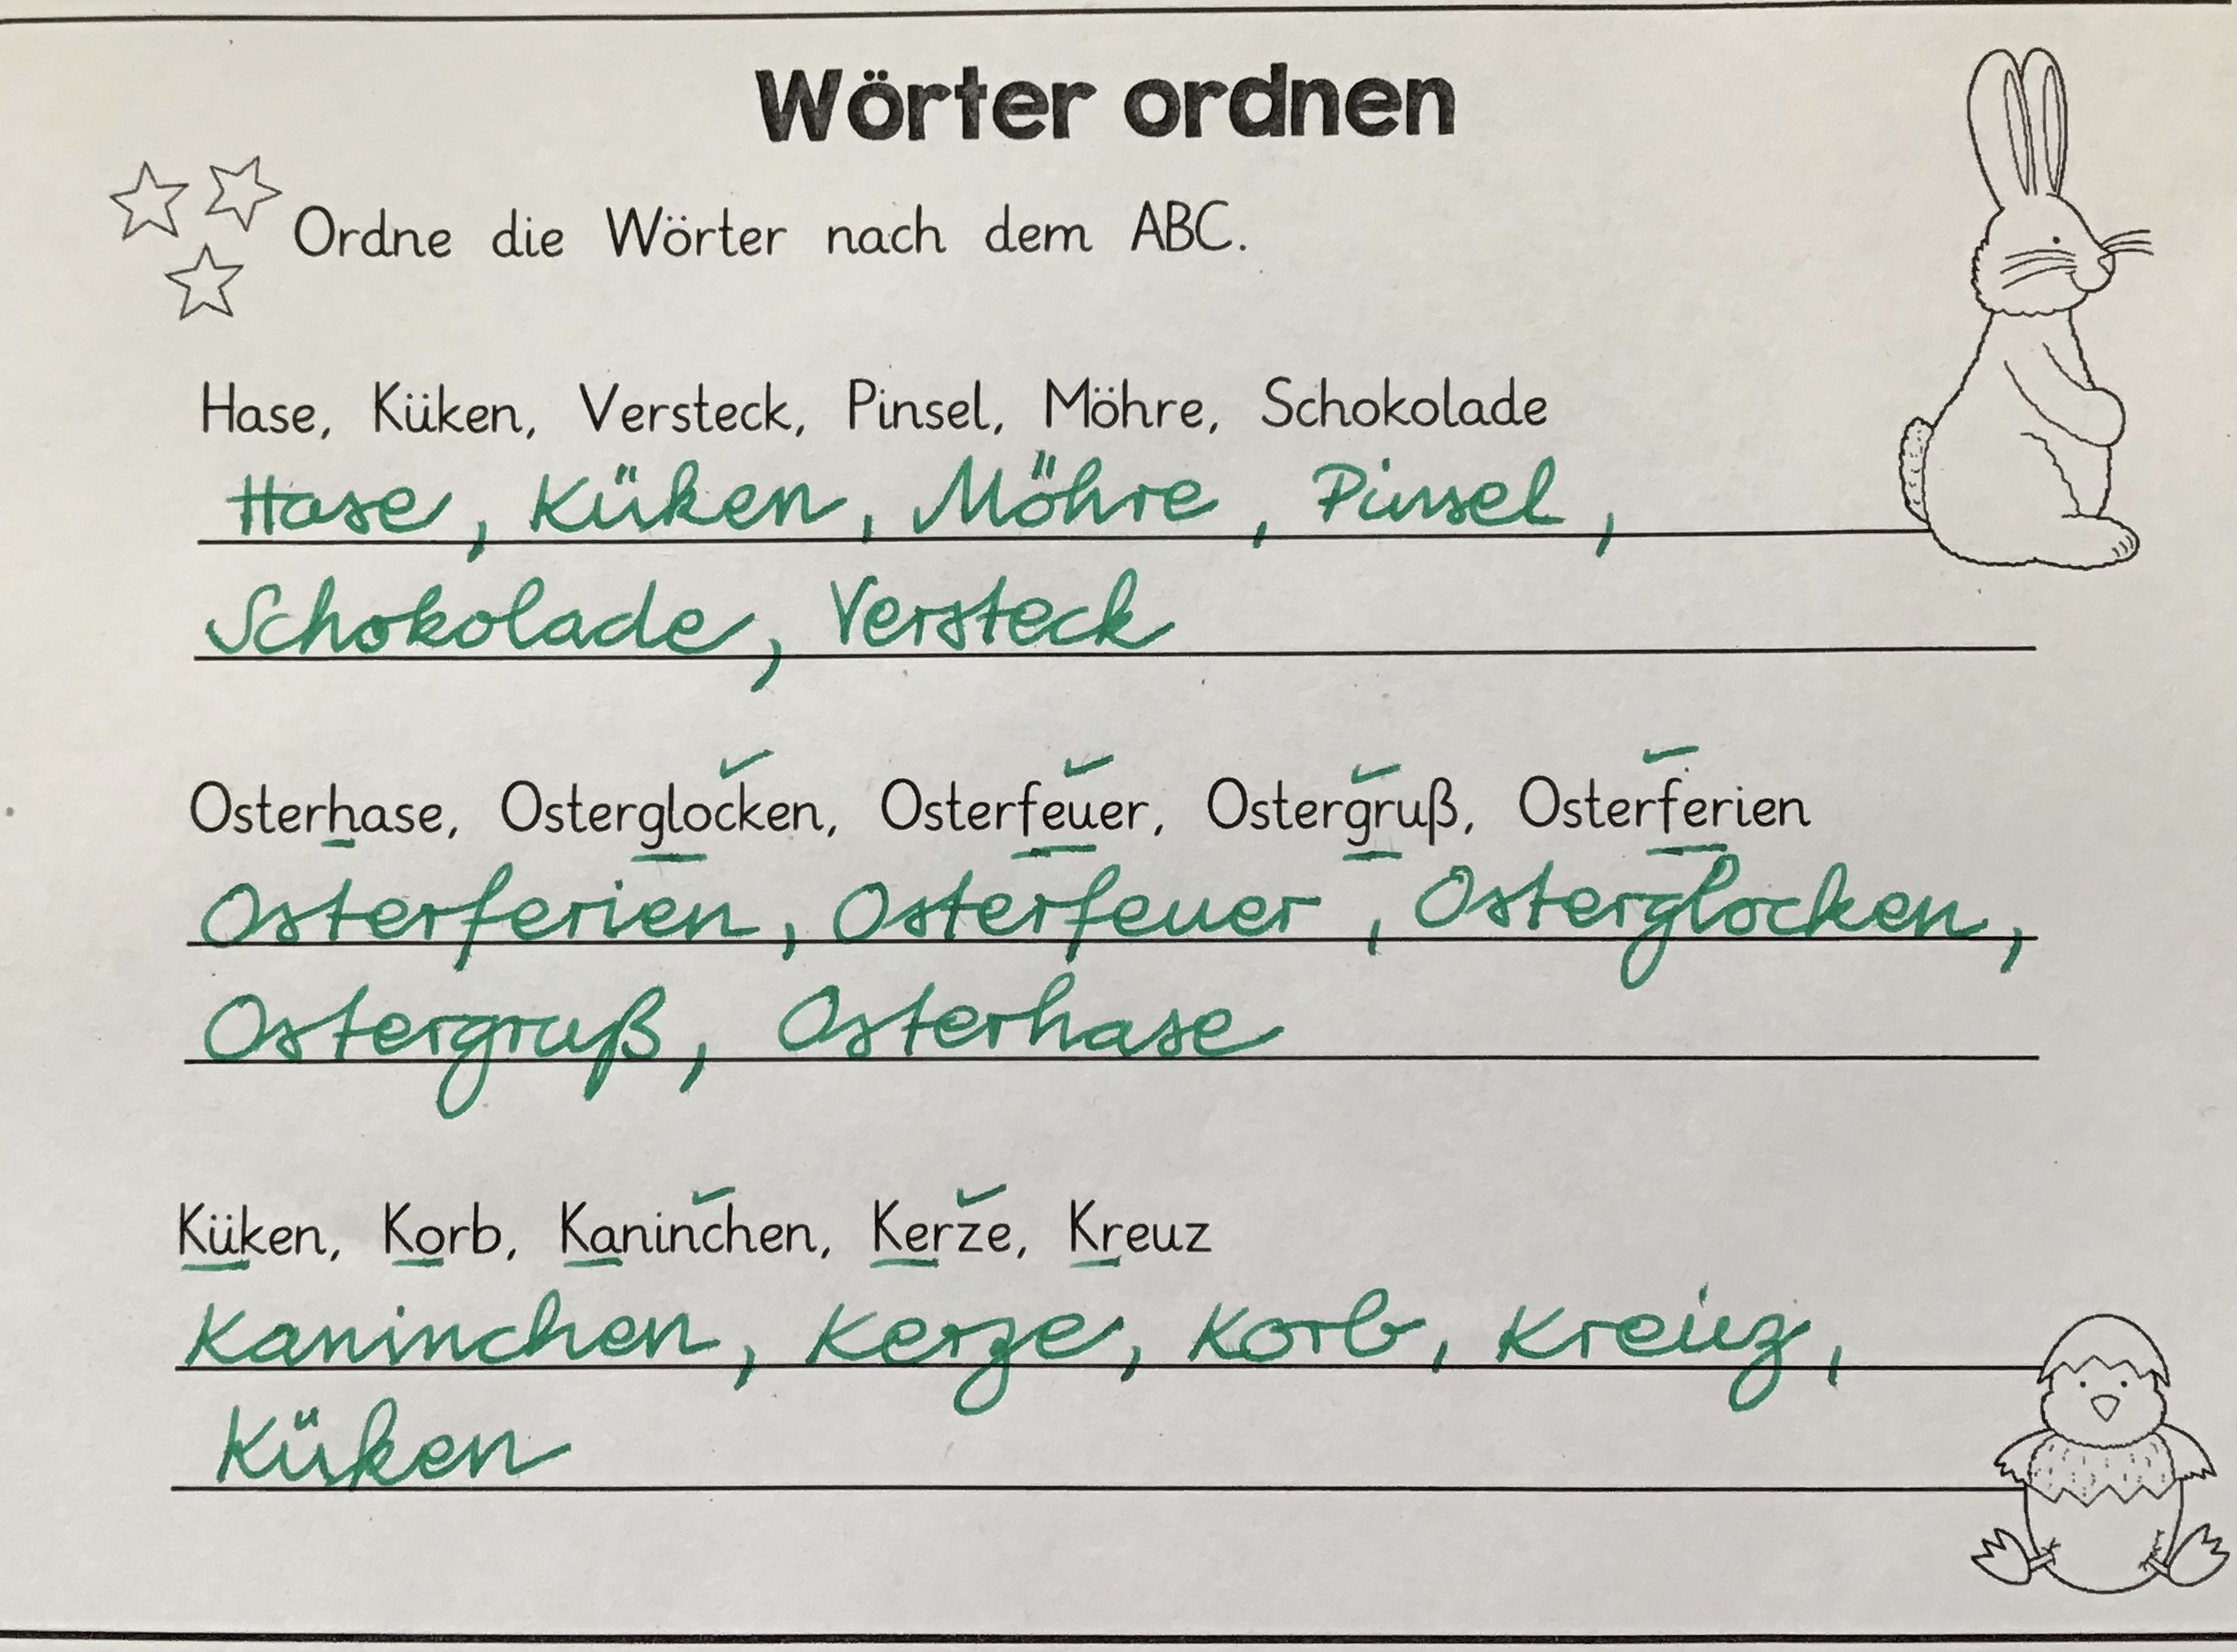 Wörter ordnen
Ordne die Wörter nach dem ABC.
Hase, Küken, Versteck, Pinsel, Möhre, Schokolade
Hase, Küken, Möhre, Pinsel,
Schokolade, Versteck
Osterhase, Osterglocken, Osterfeuer, Ostergruß, Osterferien
Osterferien, Osterfeuer, Osterglocken,
Ostergruß, Osterhase
Küken, Korb, Kaninchen, Kerze, Kreuz
Kaninchen, Kerze, Korb, Kreuz,
Küken